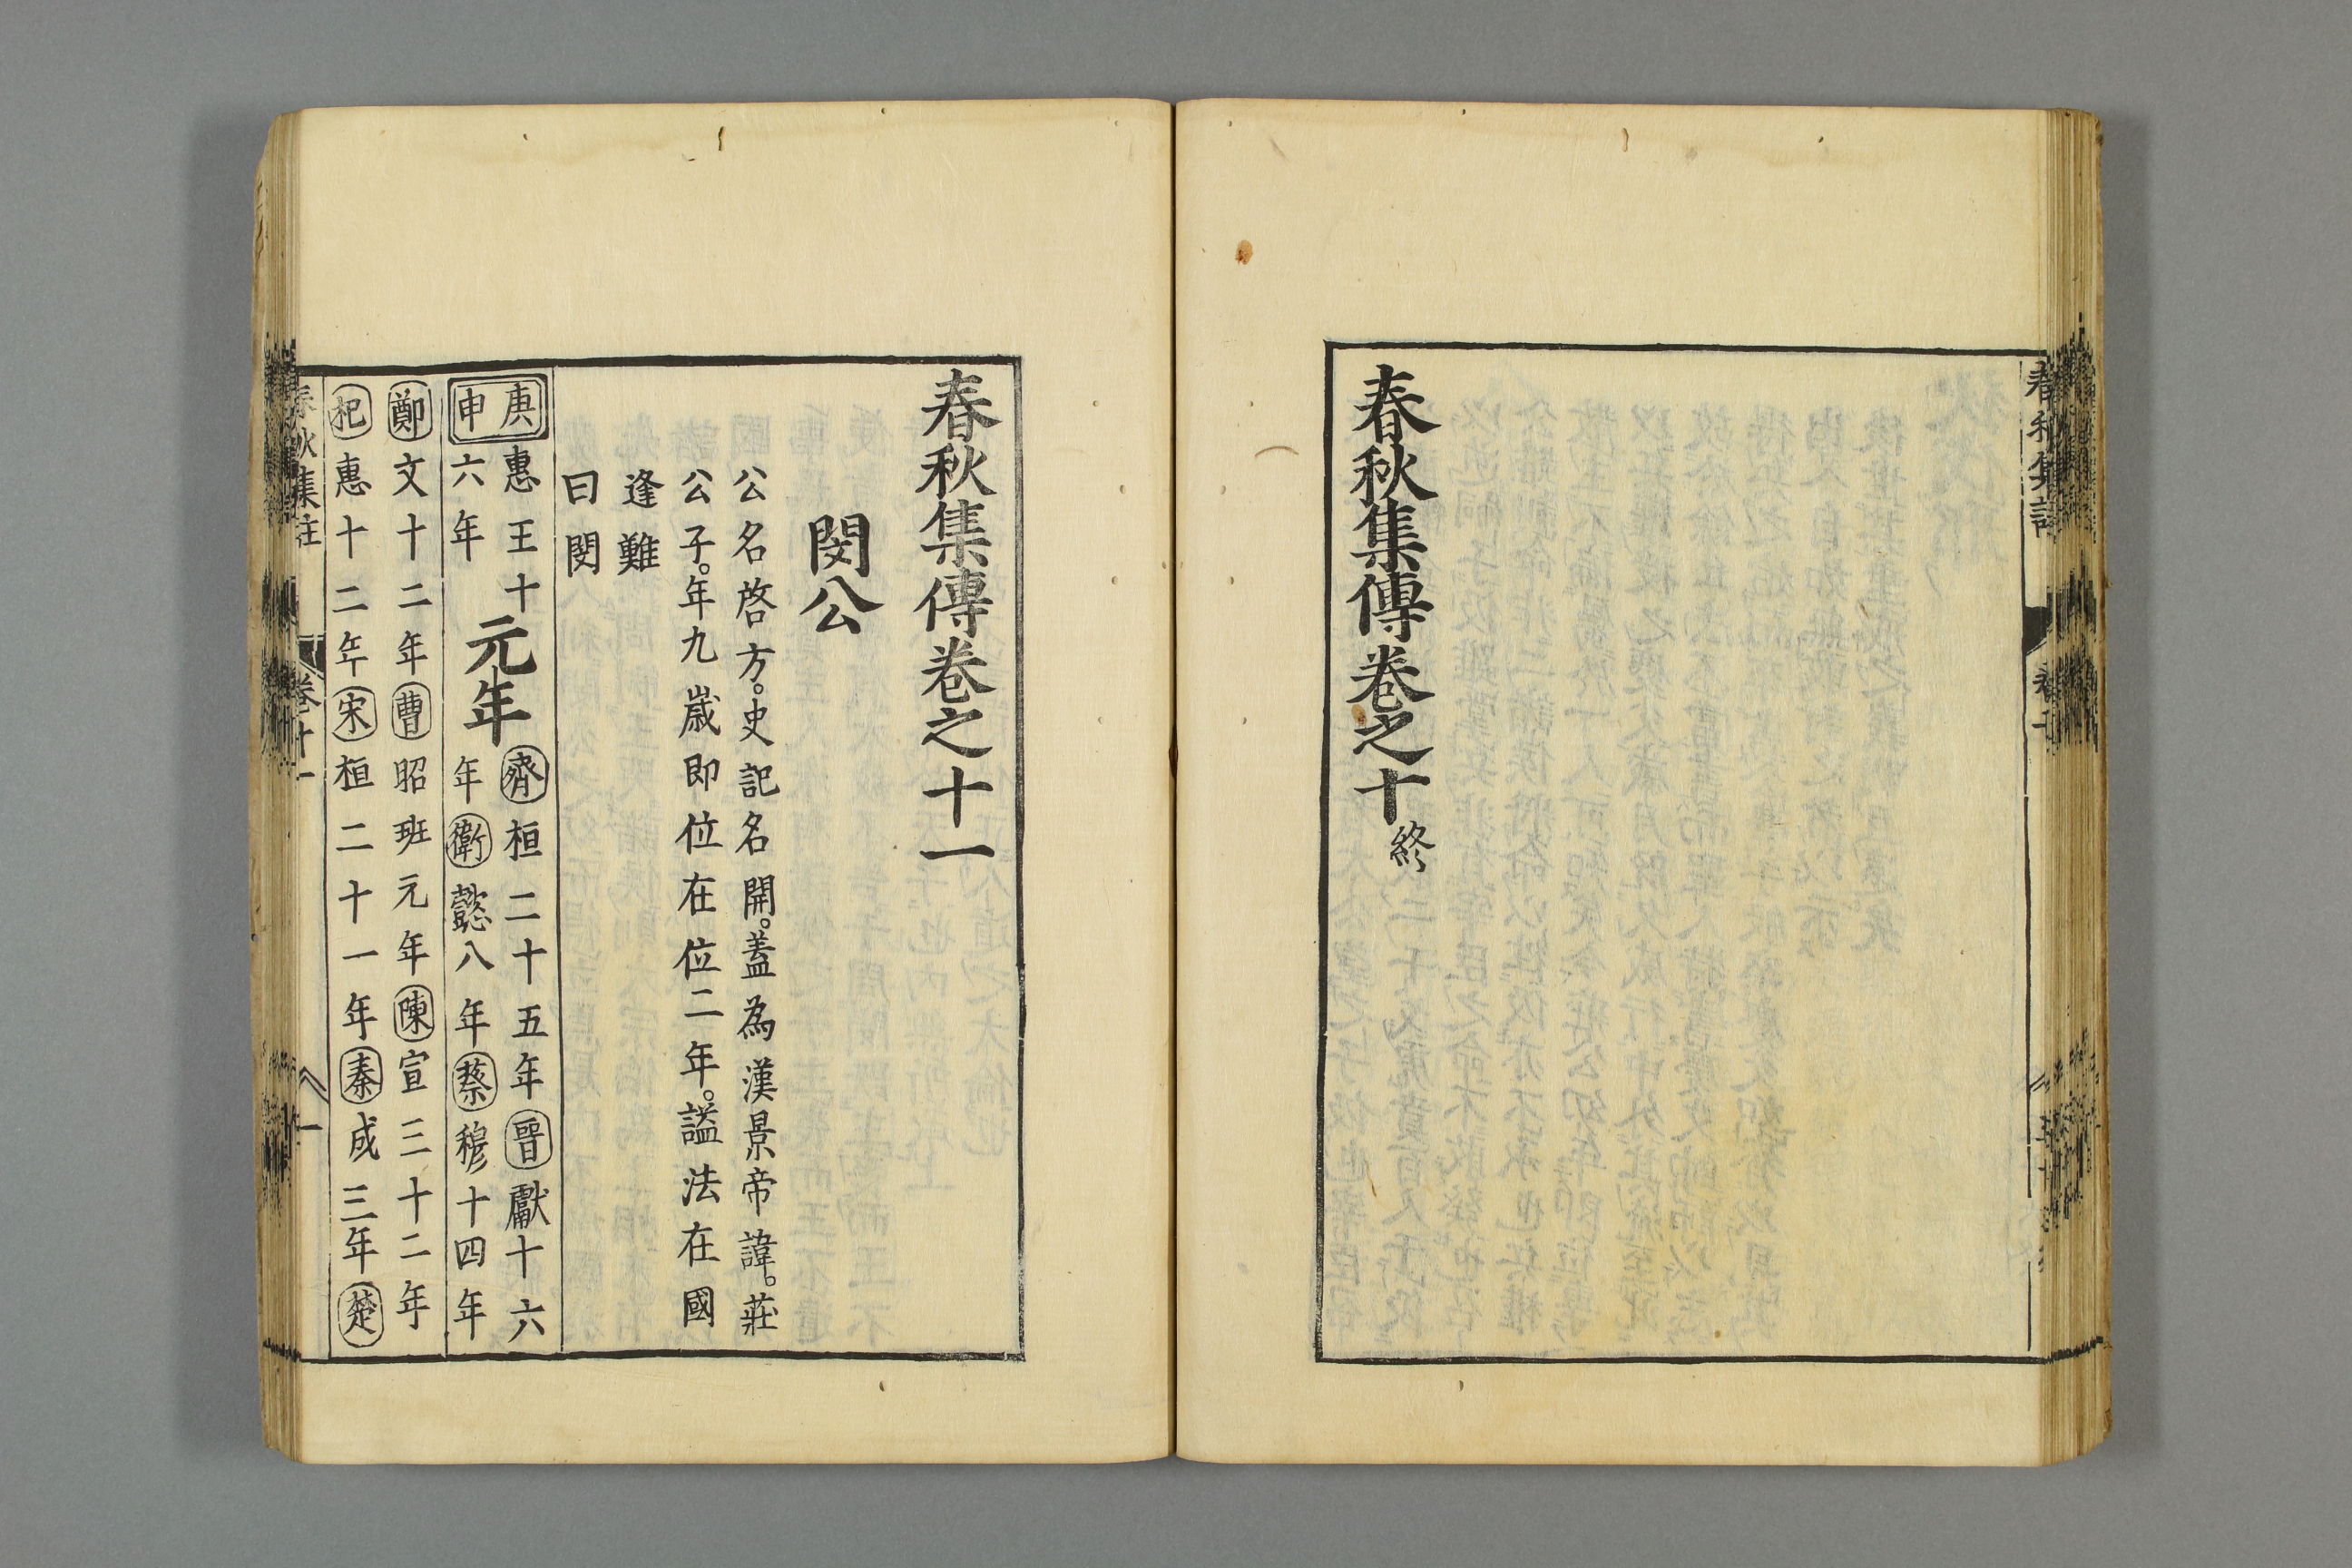 春秋集傳卷之十終
春秋集傳卷之十一
閔公
公名啓方。史記名開。蓋為漢景帝諱。莊
公子。年九歲即位在位二年。謚法在國
逢難
曰閔
庚申
惠王十
六年
元年
齊桓二十五年晉獻十六
年衛懿八年蔡穆十四年
鄭文十二年曹昭班元年陳宣三十二年
杞惠十二年宋桓二十一年秦成三年楚
春秋集註 卷十一 一